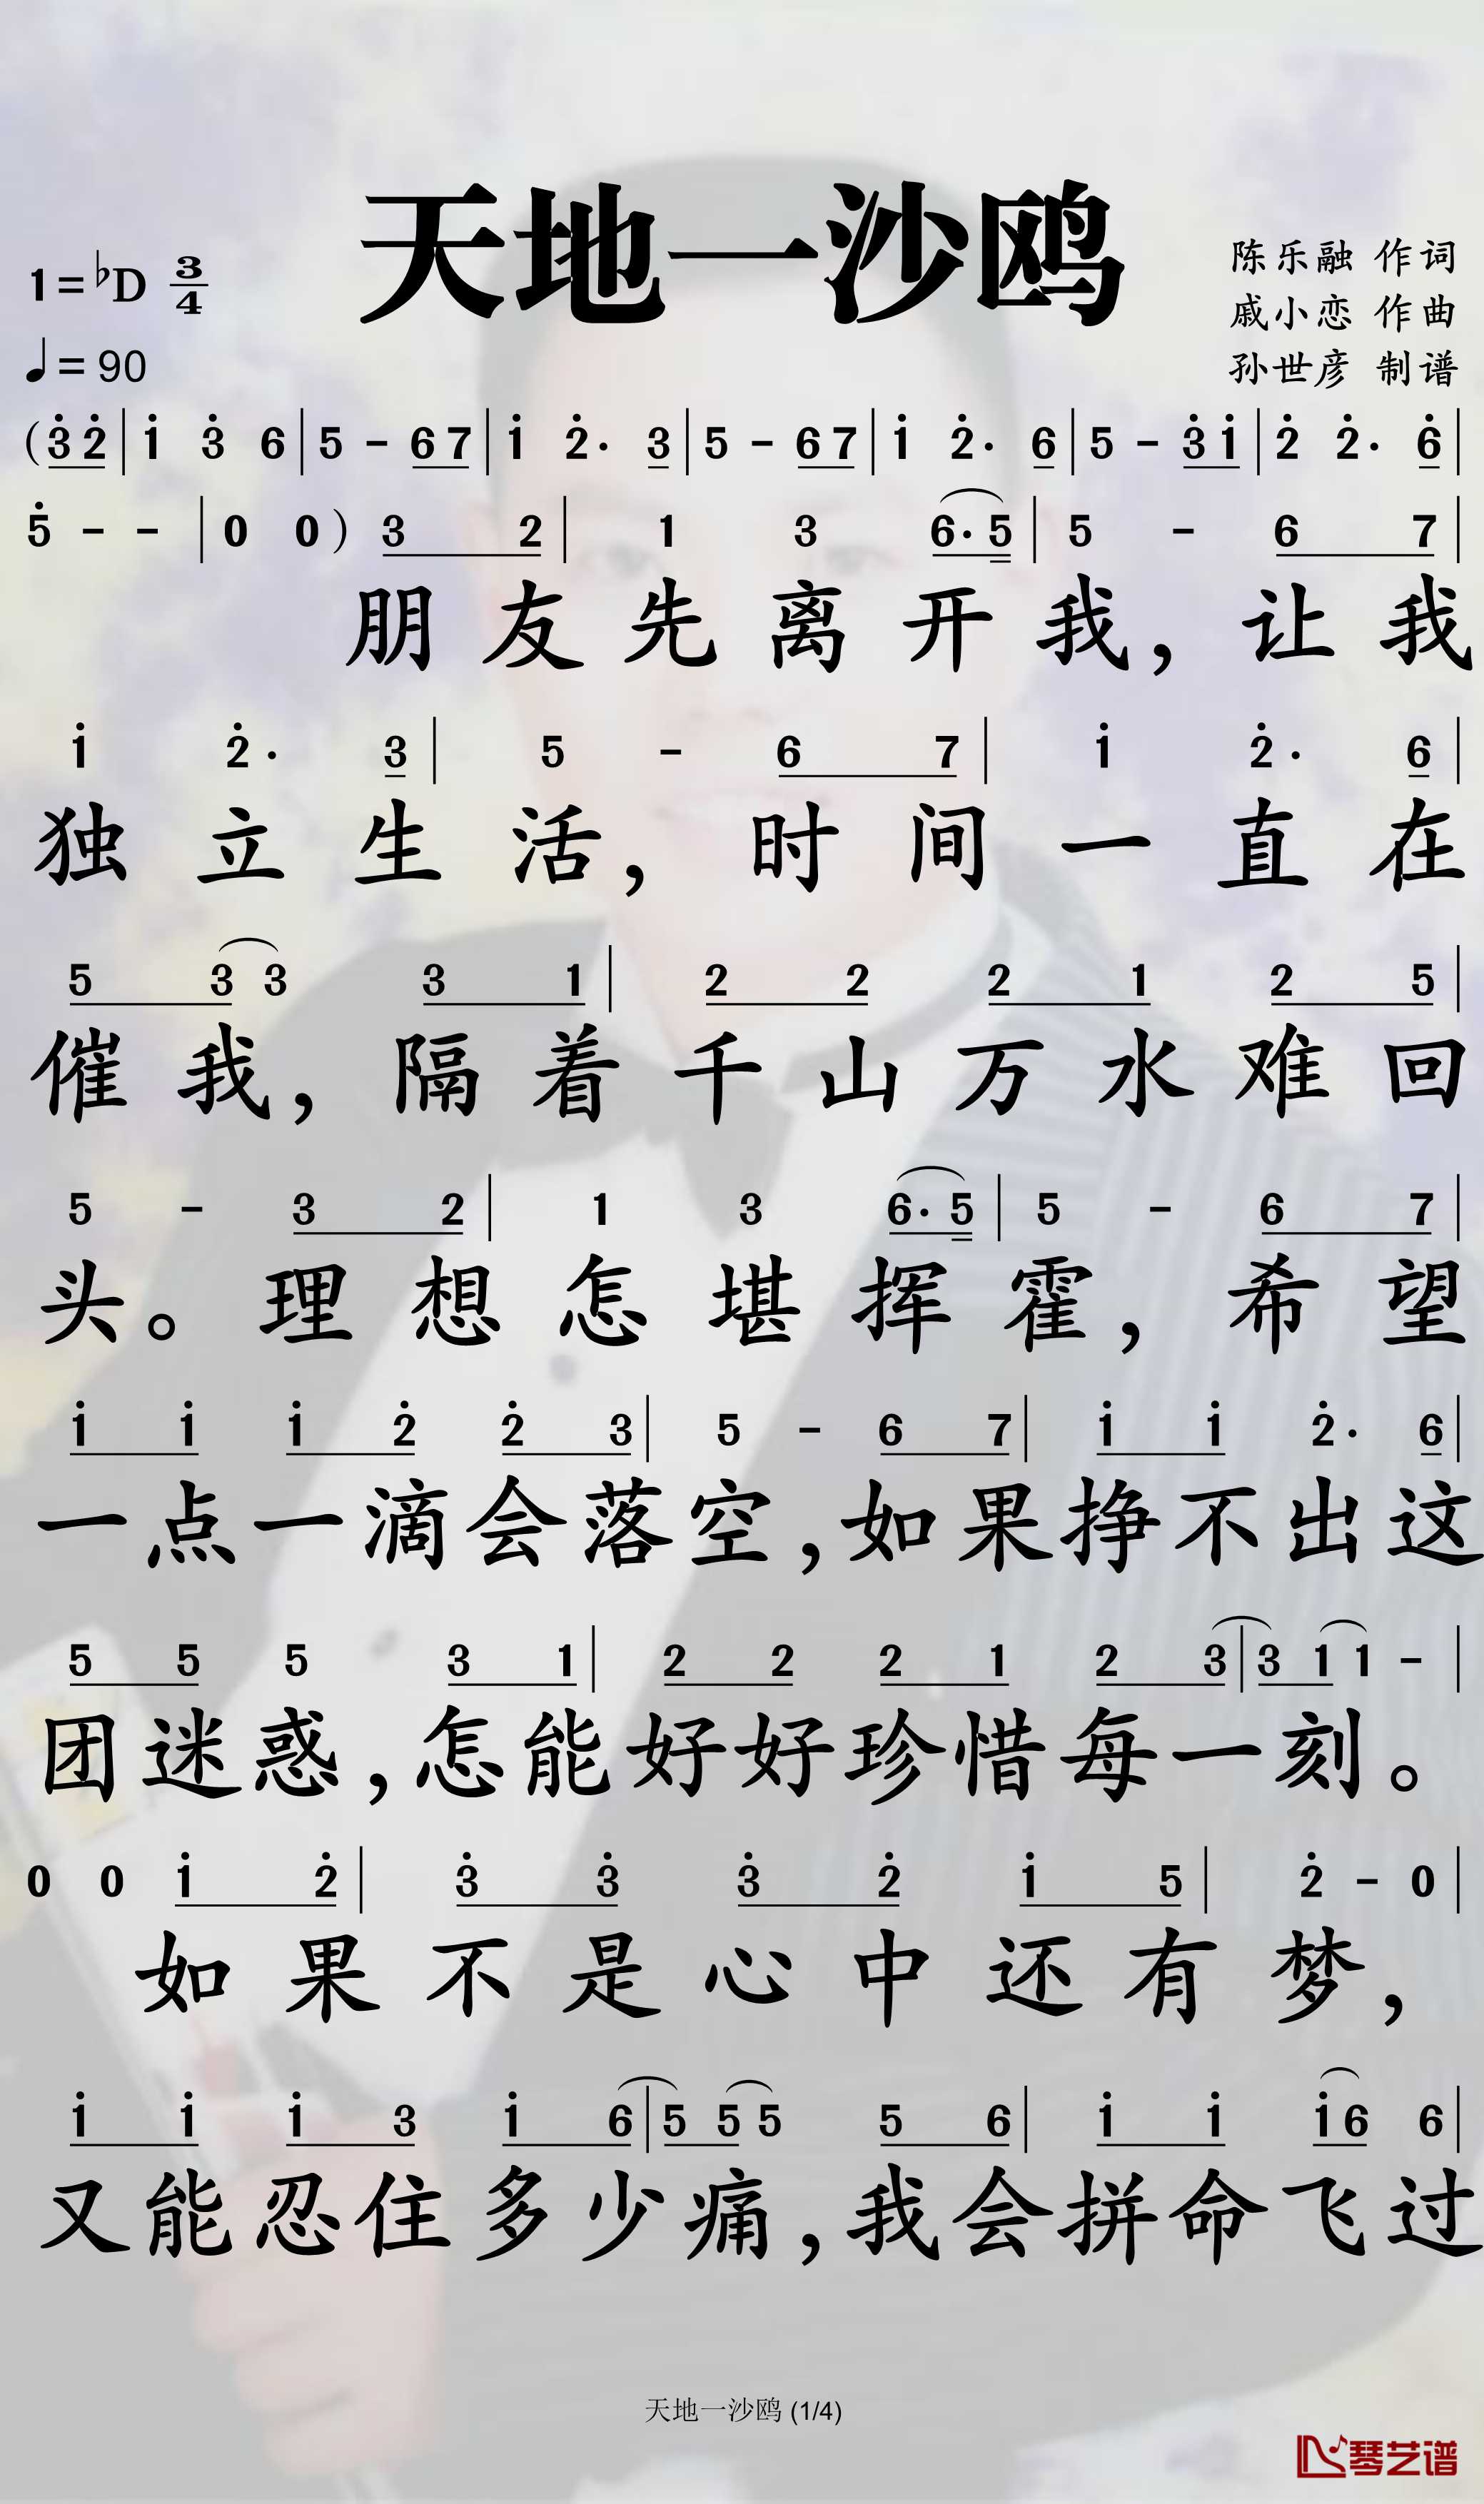 天地一沙鸥
1=♭D 3/4
♩=90
陈乐融 作词
戚小恋 作曲
孙世彦 制谱
(3̇ 2̇ | 1̇ 3̇ 6 | 5 - 6 7 | 1̇ 2̇· 3 | 5 - 6 7 | 1̇ 2̇· 6 | 5 - 3̇ 1̇ | 2̇ 2̇· 6̇ |
5̇ - - | 0 0 ) 3 2 | 1 3 6· 5 | 5 - 6 7 |
朋友先离开我，让我
1̇ 2̇· 3 | 5 - 6 7 | 1̇ 2̇· 6 |
独立生活，时间一直在
5 3 3 3 1 | 2 2 2 1 2 5 |
催我，隔着千山万水难回
5 - 3 2 | 1 3 6· 5 | 5 - 6 7 |
头。理想怎堪挥霍，希望
1̇ 1̇ 1̇ 2̇ 2̇ 3 | 5 - 6 7 | 1̇ 1̇ 2̇· 6 |
一点一滴会落空，如果挣不出这
5 5 5 3 1 | 2 2 2 1 2 3 | 3 1 1 - |
团迷惑，怎能好好珍惜每一刻。
0 0 1̇ 2̇ | 3̇ 3̇ 3̇ 2̇ 1̇ 5 | 2̇ - 0 |
如果不是心中还有梦，
1̇ 1̇ 1̇ 3 1̇ 6 | 5 5 5 5 6 | 1̇ 1̇ 1̇ 6 6 |
又能忍住多少痛，我会拼命飞过
天地一沙鸥 (1/4)
琴艺谱